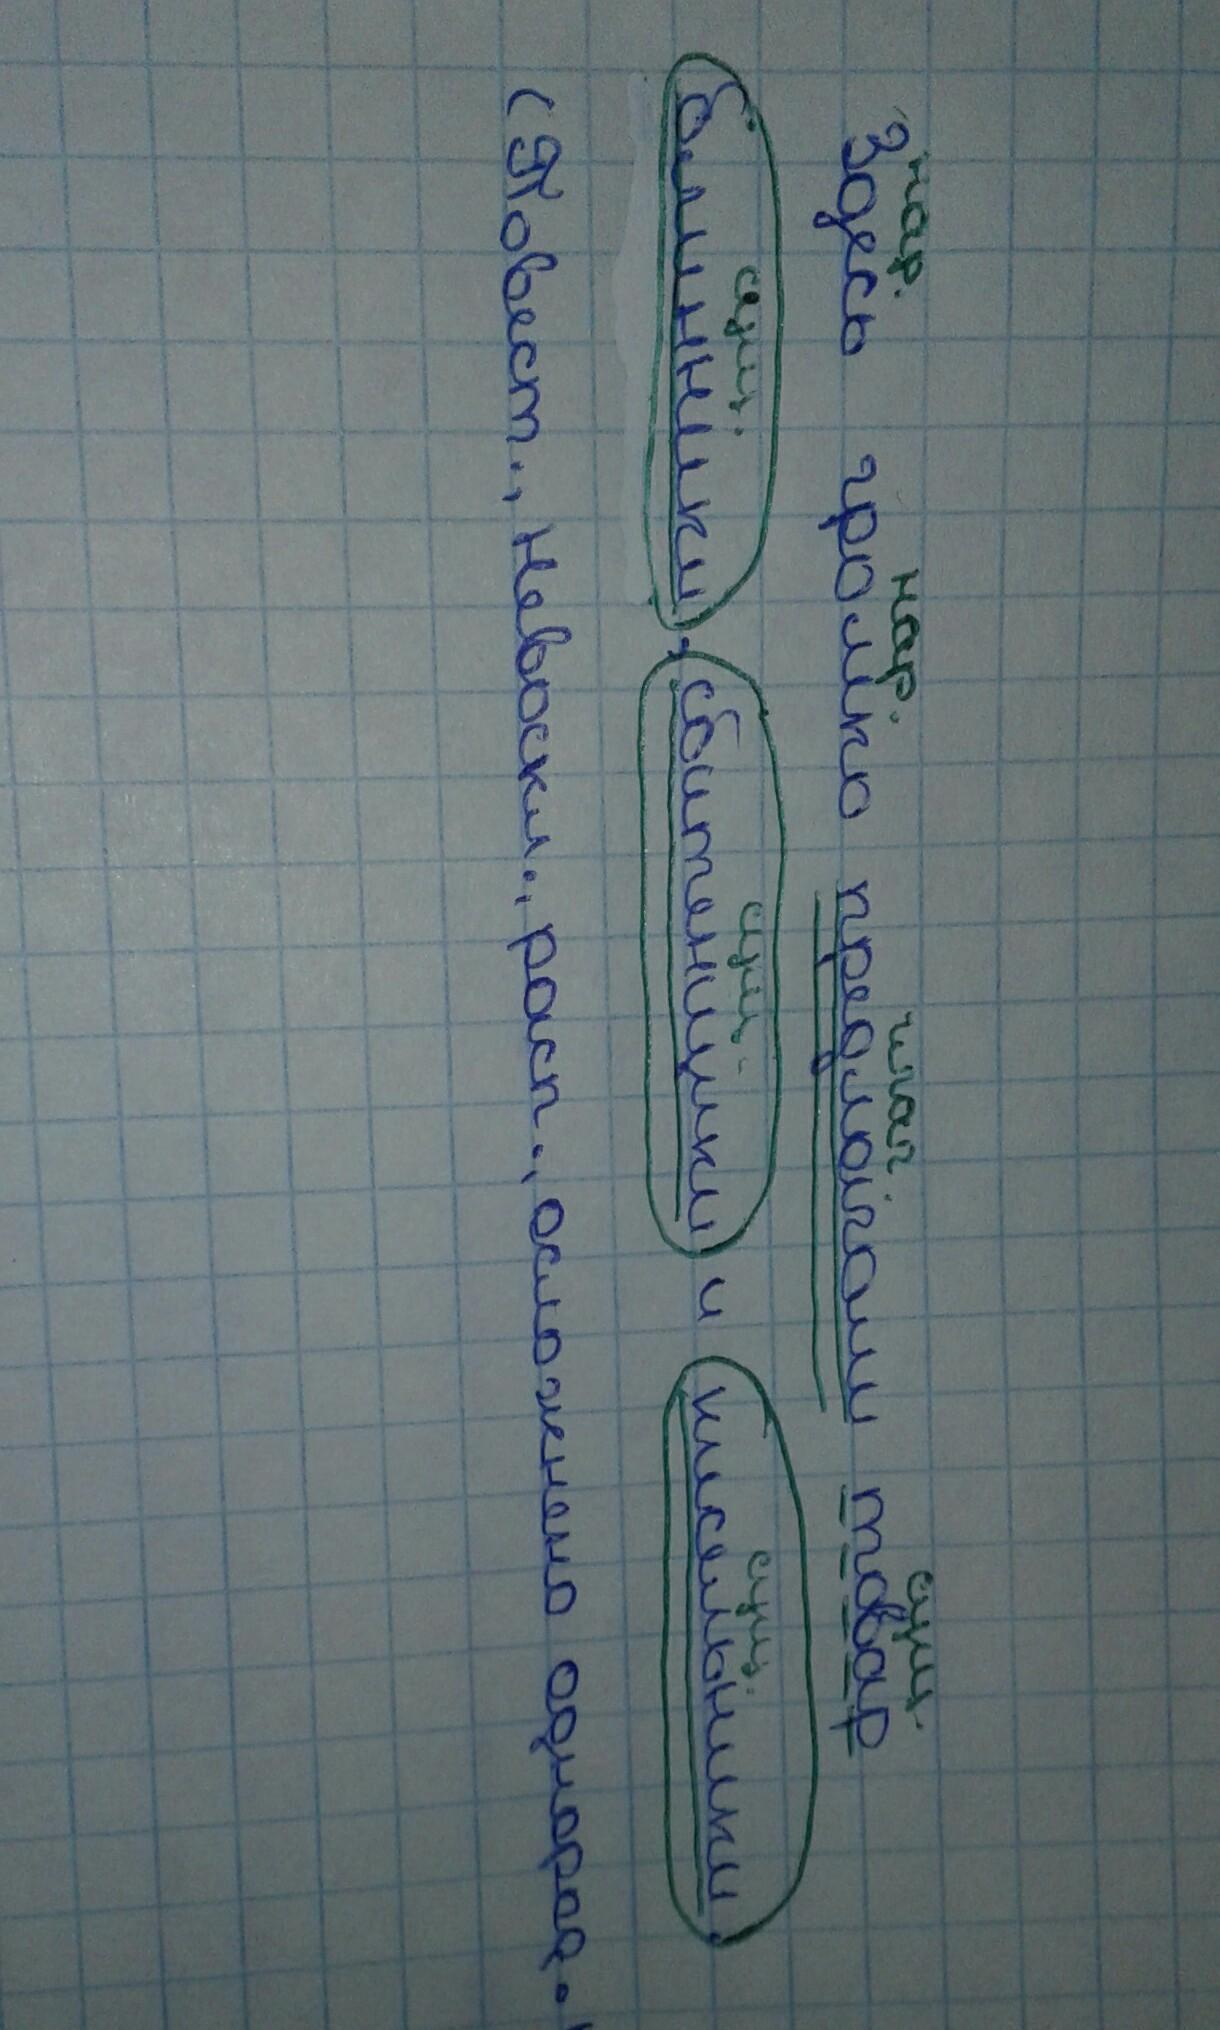 нар. нар. глаг сущ.
Здесь громко предлагали товар
сущ. сущ. сущ.
блинники, сбитенщики и кисельники.
(Повест., невоскл., расп., осложнено однород.